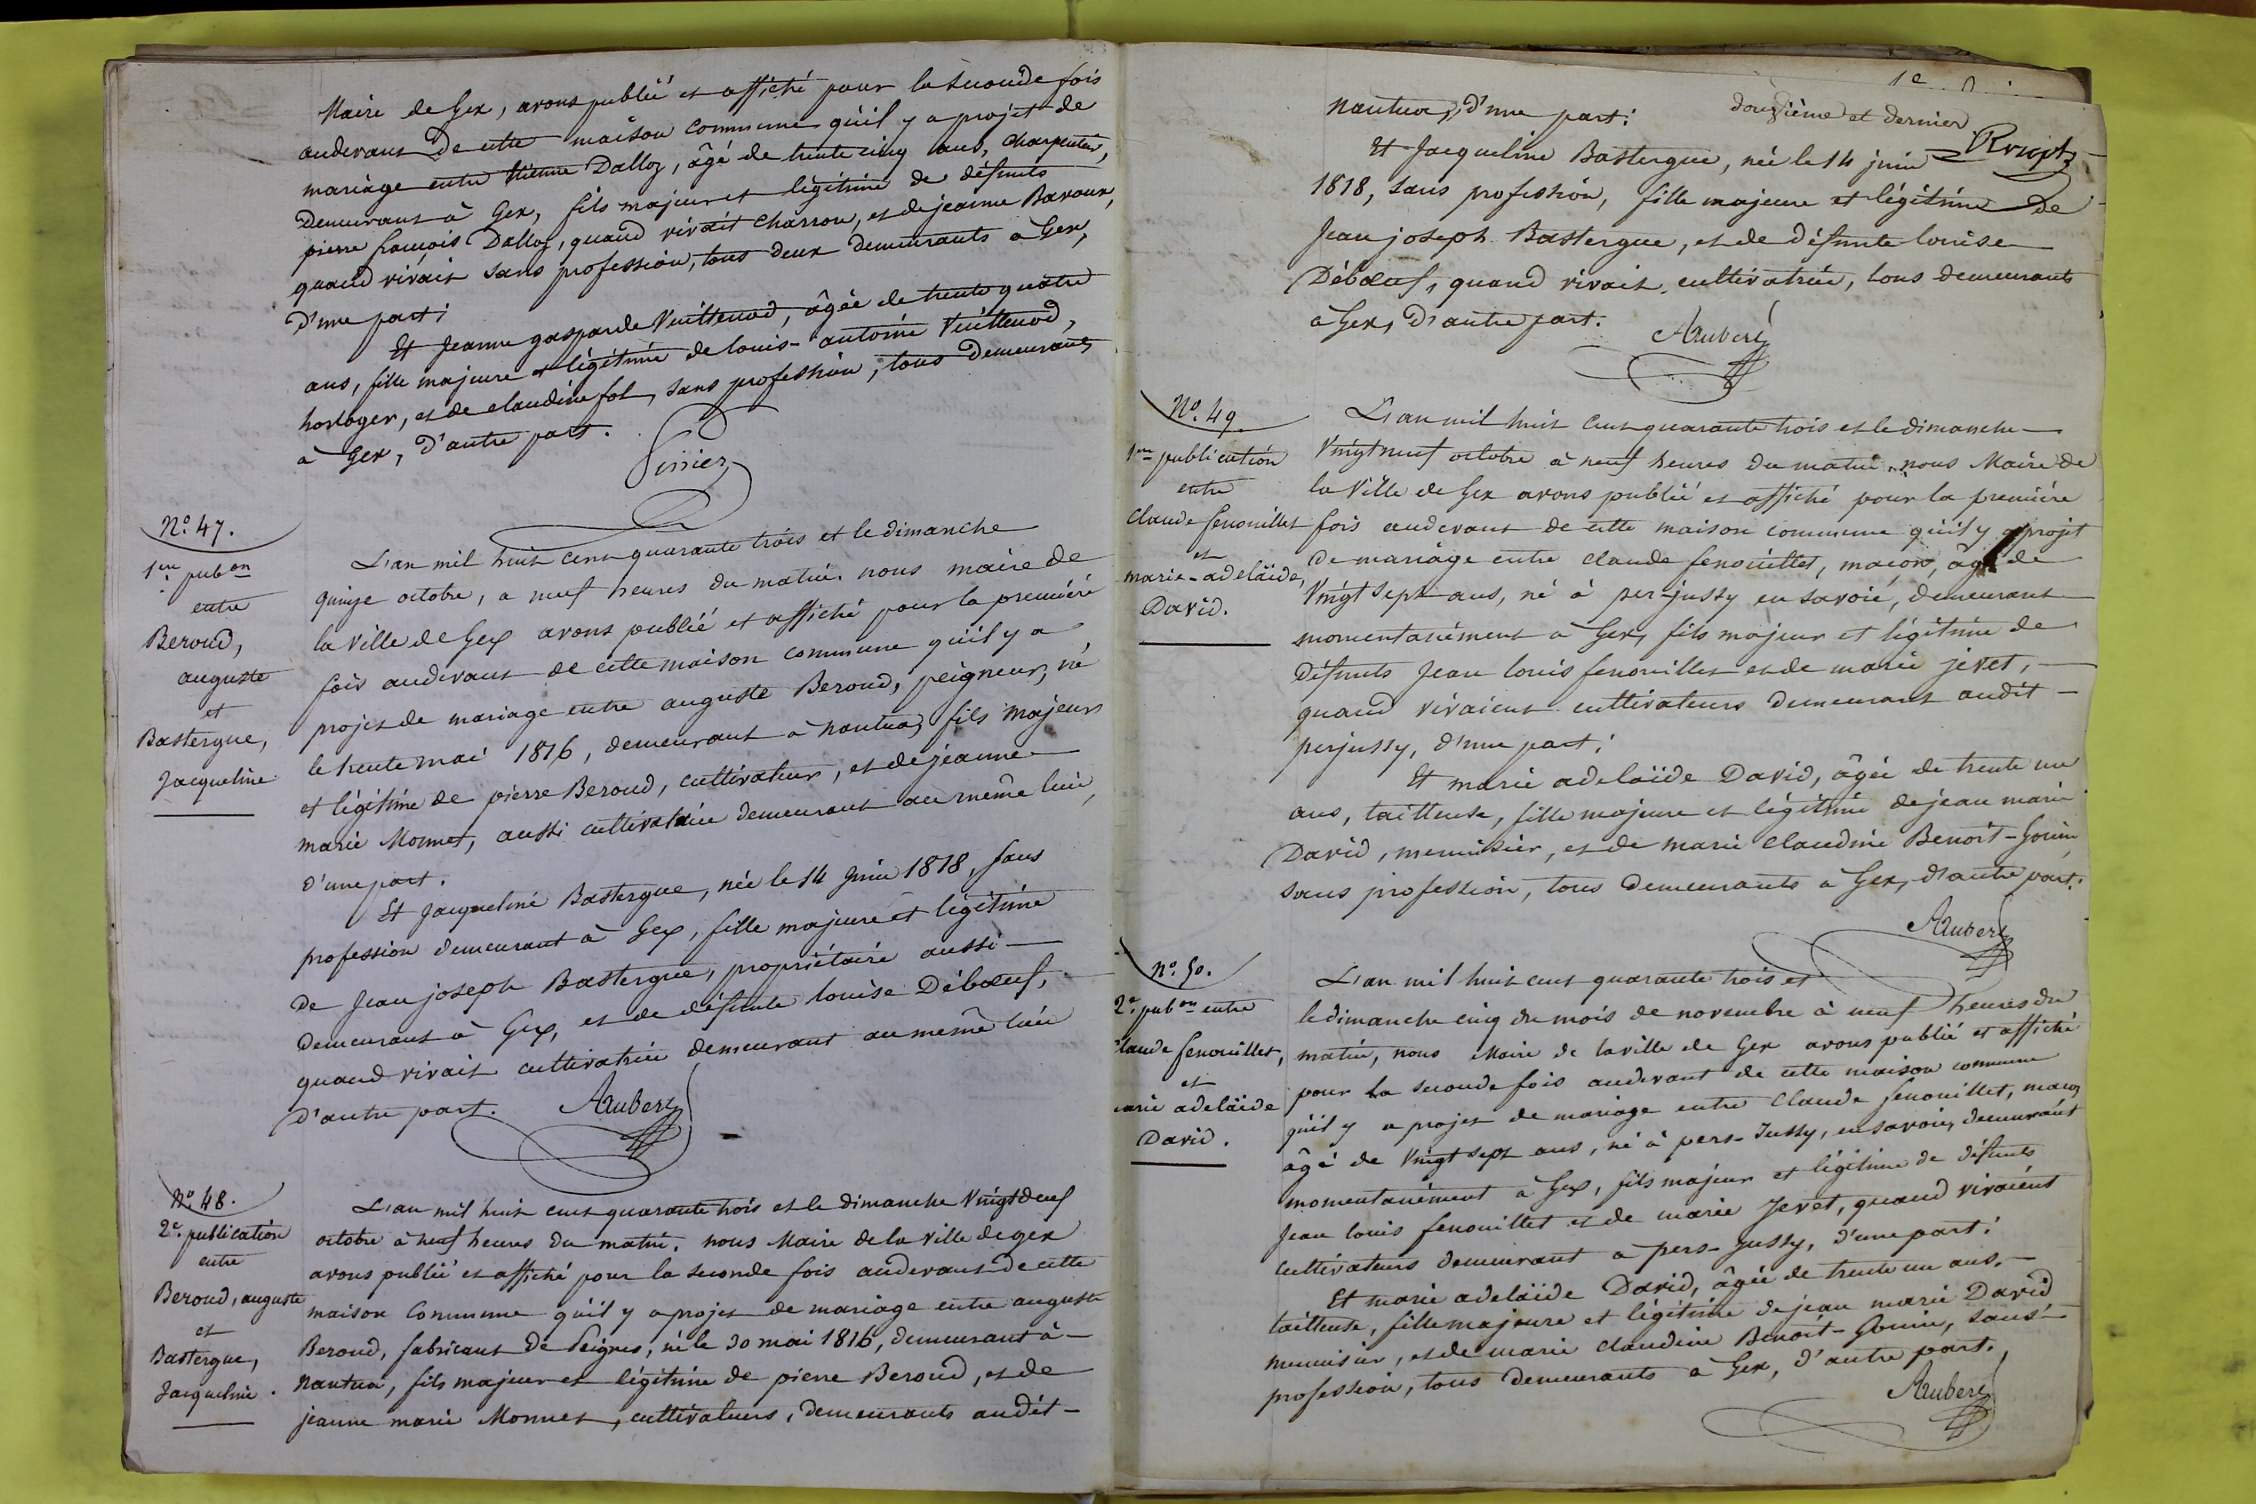 Maire de Gex, avons publié et affiché pour la seconde fois
audevant de cette maison commune qu'il y a projet de
mariage entre Etienne Dalloz, âgé de trente cinq ans, charpentier,
Demeurant à Gex, fils majeur et légitime de défunts
pierre françois Dalloz, quand vivait charron, et de jeanne Bavoux,
quand vivait sans profession, tous deux demeurants à Gex,
D'une part;
Et Jeanne gasparde Vuittenod, âgée de trente quatre
ans, fille majeure et légitime de louis-antoine Vuittenod,
horloger, et de claudine fol, sans profession, tous demeurants
à Gex, D'autre part.
N.º 47.
1ere pubon
entre
Beroud,
auguste
et
Bastergue,
Jacqueline
L'an mil huit cent quarante trois et le dimanche
quinze octobre, a neuf heures du matin. nous maire de
la Ville de Gex avons publié et affiché pour la première
fois audevant de cette maison commune qu'il y a
projet de mariage entre auguste Beroud, peigneur, né
le trente mai 1816, demeurant à nantua, fils majeur
et légitime de pierre Beroud, cultivateur, et de jeanne
marie Monnet, aussi cultivatrice demeurant au même lieu,
d'une part.
Et Jacqueline Bastergue, née le 14 Juin 1818, sans
profession demeurant à Gex, fille majeure et légitime
de Jean joseph Bastergue, propriétaire aussi
demeurant à Gex, et de défunte louise Débœuf,
quand vivait cultivatrice demeurant au même lieu
D'autre part.
N.º 48.
2e. publication
entre
Beroud, auguste
et
Bastergue,
Jacqueline.
L'an mil huit cent quarante trois et le dimanche Vingt deux
octobre à neuf heures du matin. nous Maire de la Ville de gex
avons publié et affiché pour la seconde fois audevant de cette
maison Commune qu'il y a projet de mariage entre auguste
Beroud, fabricant de Peignes, né le 30 mai 1816, demeurant à
Nantua, fils majeur et légitime de pierre Beroud, et de
jeanne marie Monnet, cultivateurs, demeurants audit
1e
nantua, d'une part;
douzième et dernier
Et Jacqueline Bastergue, née le 14 juin
1818, sans profession, fille majeure et légitime de
Jean joseph Bastergue, et de défunte louise
Débœuf, quand vivait cultivatrice, tous demeurants
à Gex, D'autre part.
N.º 49.
1ere publication
entre
Claude fenouillet
et
marie-adelaïde,
David.
L'an mil huit cent quarante trois et le dimanche
Vingt neuf octobre à neuf heures du matin, nous Maire de
la Ville de Gex avons publié et affiché pour la première
fois audevant de cette maison commune qu'il y a projet
de mariage entre claude fenouillet, maçon, âgé de
Vingt sept ans, né à per-jussy en savoie, demeurant
momentanément à Gex, fils majeur et légitime de
défunts Jean louis fenouillet et de marie jevet,
quand vivaient cultivateurs demeurant audit
perjussy, d'une part;
Et marie adelaïde David, âgée de trente un
ans, tailleuse, fille majeure et légitime de jean marie
David, menuisier, et de marie claudine Benoit-Gonin
sans profession, tous demeurants à Gex, d'autre part.
N.º 50.
2e. pubon entre
Claude fenouillet,
et
marie adelaïde
David.
L'an mil huit cent quarante trois et
le dimanche cinq du mois de novembre à neuf heures du
matin, nous Maire de la ville de Gex avons publié et affiché
pour la seconde fois audevant de cette maison commune
qu'il y a projet de mariage entre Claude fenouillet, maçon
âgé de Vingt sept ans, né à pers-Jussy, en savoie, demeurant
momentanément à Gex, fils majeur et légitime de défunts
Jean louis fenouillet et de marie Jevet, quand vivaient
cultivateurs demeurant a pers-Jussy, d'une part;
Et marie adelaïde David, âgée de trente un ans,
tailleuse, fille majeure et légitime de jean marie David
menuisier, et de marie claudine Benoit-Gonin, sans
profession, tous demeurants à Gex, d'autre part.